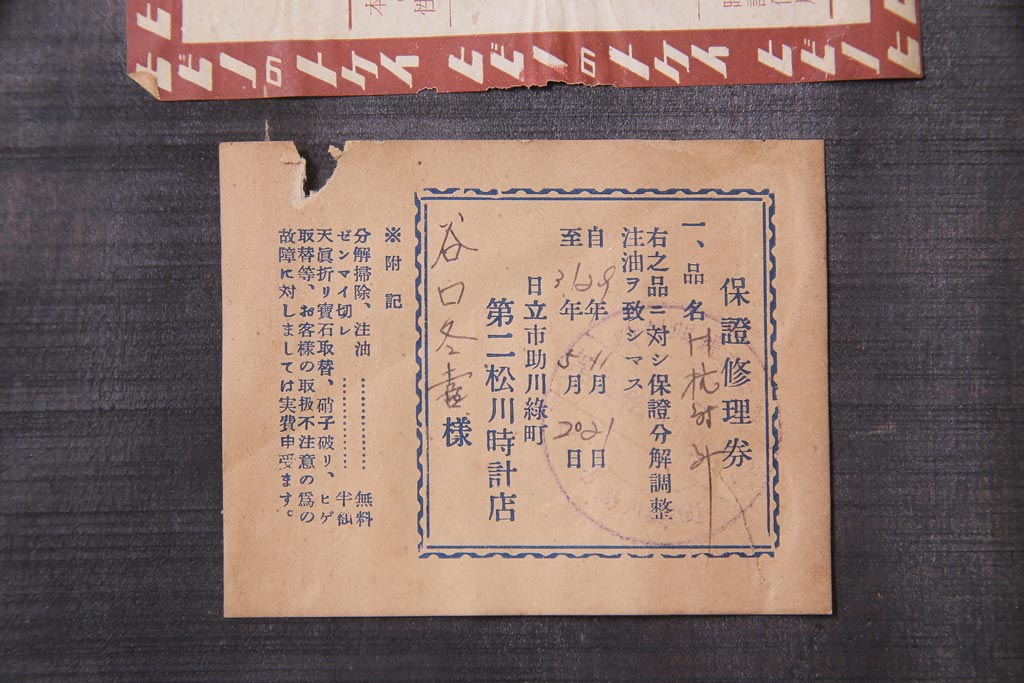 ヒビノのトケイ ヒビノのトケイ ヒビノ
保證修理券
一、品名
右之品ニ対シ保證分解調整
注油ヲ致シマス
自29年11月21日
至31年5月20日
日立市助川綠町
第二松川時計店
谷口冬喜様
※附記
分解掃除、注油…………無料
ゼンマイ切レ…………半額
天眞折リ寶石取替、硝子破リ、ヒゲ
取替等、お客様の取扱不注意の爲の
故障に対しましては実費申受ます。